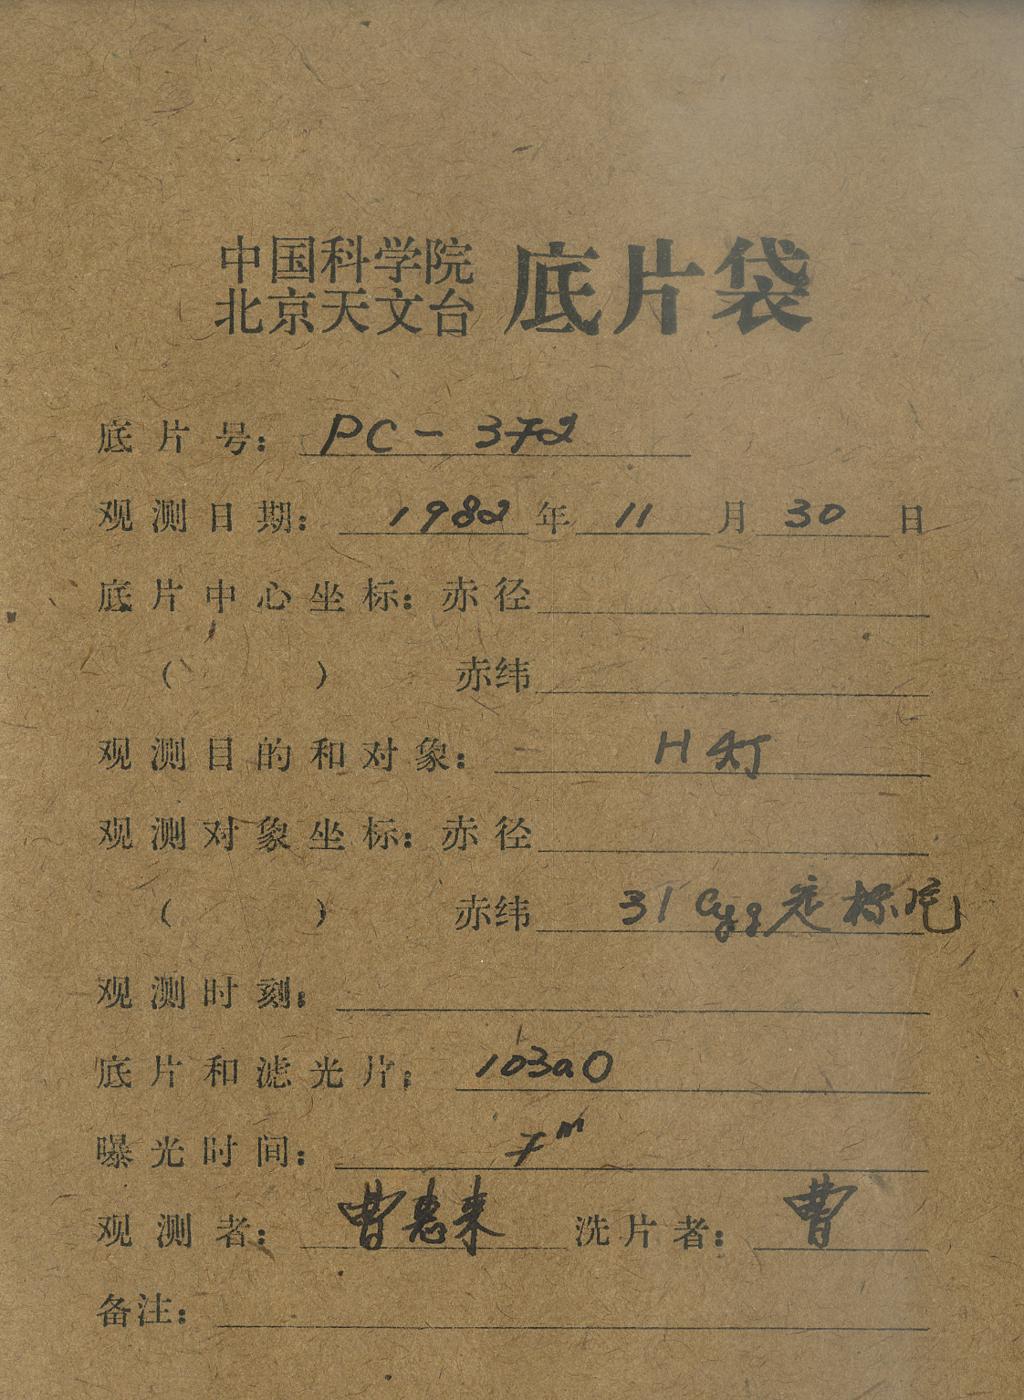 中国科学院
北京天文台 底片袋
底片号: PC-372
观测日期: 1982年 11月 30日
底片中心坐标: 赤径
( ) 赤纬
观测目的和对象: H灯
观测对象坐标: 赤径
( ) 赤纬 31 Cyg 定标片
观测时刻:
底片和滤光片: 103aO
曝光时间: 7m
观测者: 曹惠来 洗片者: 曹
备注: